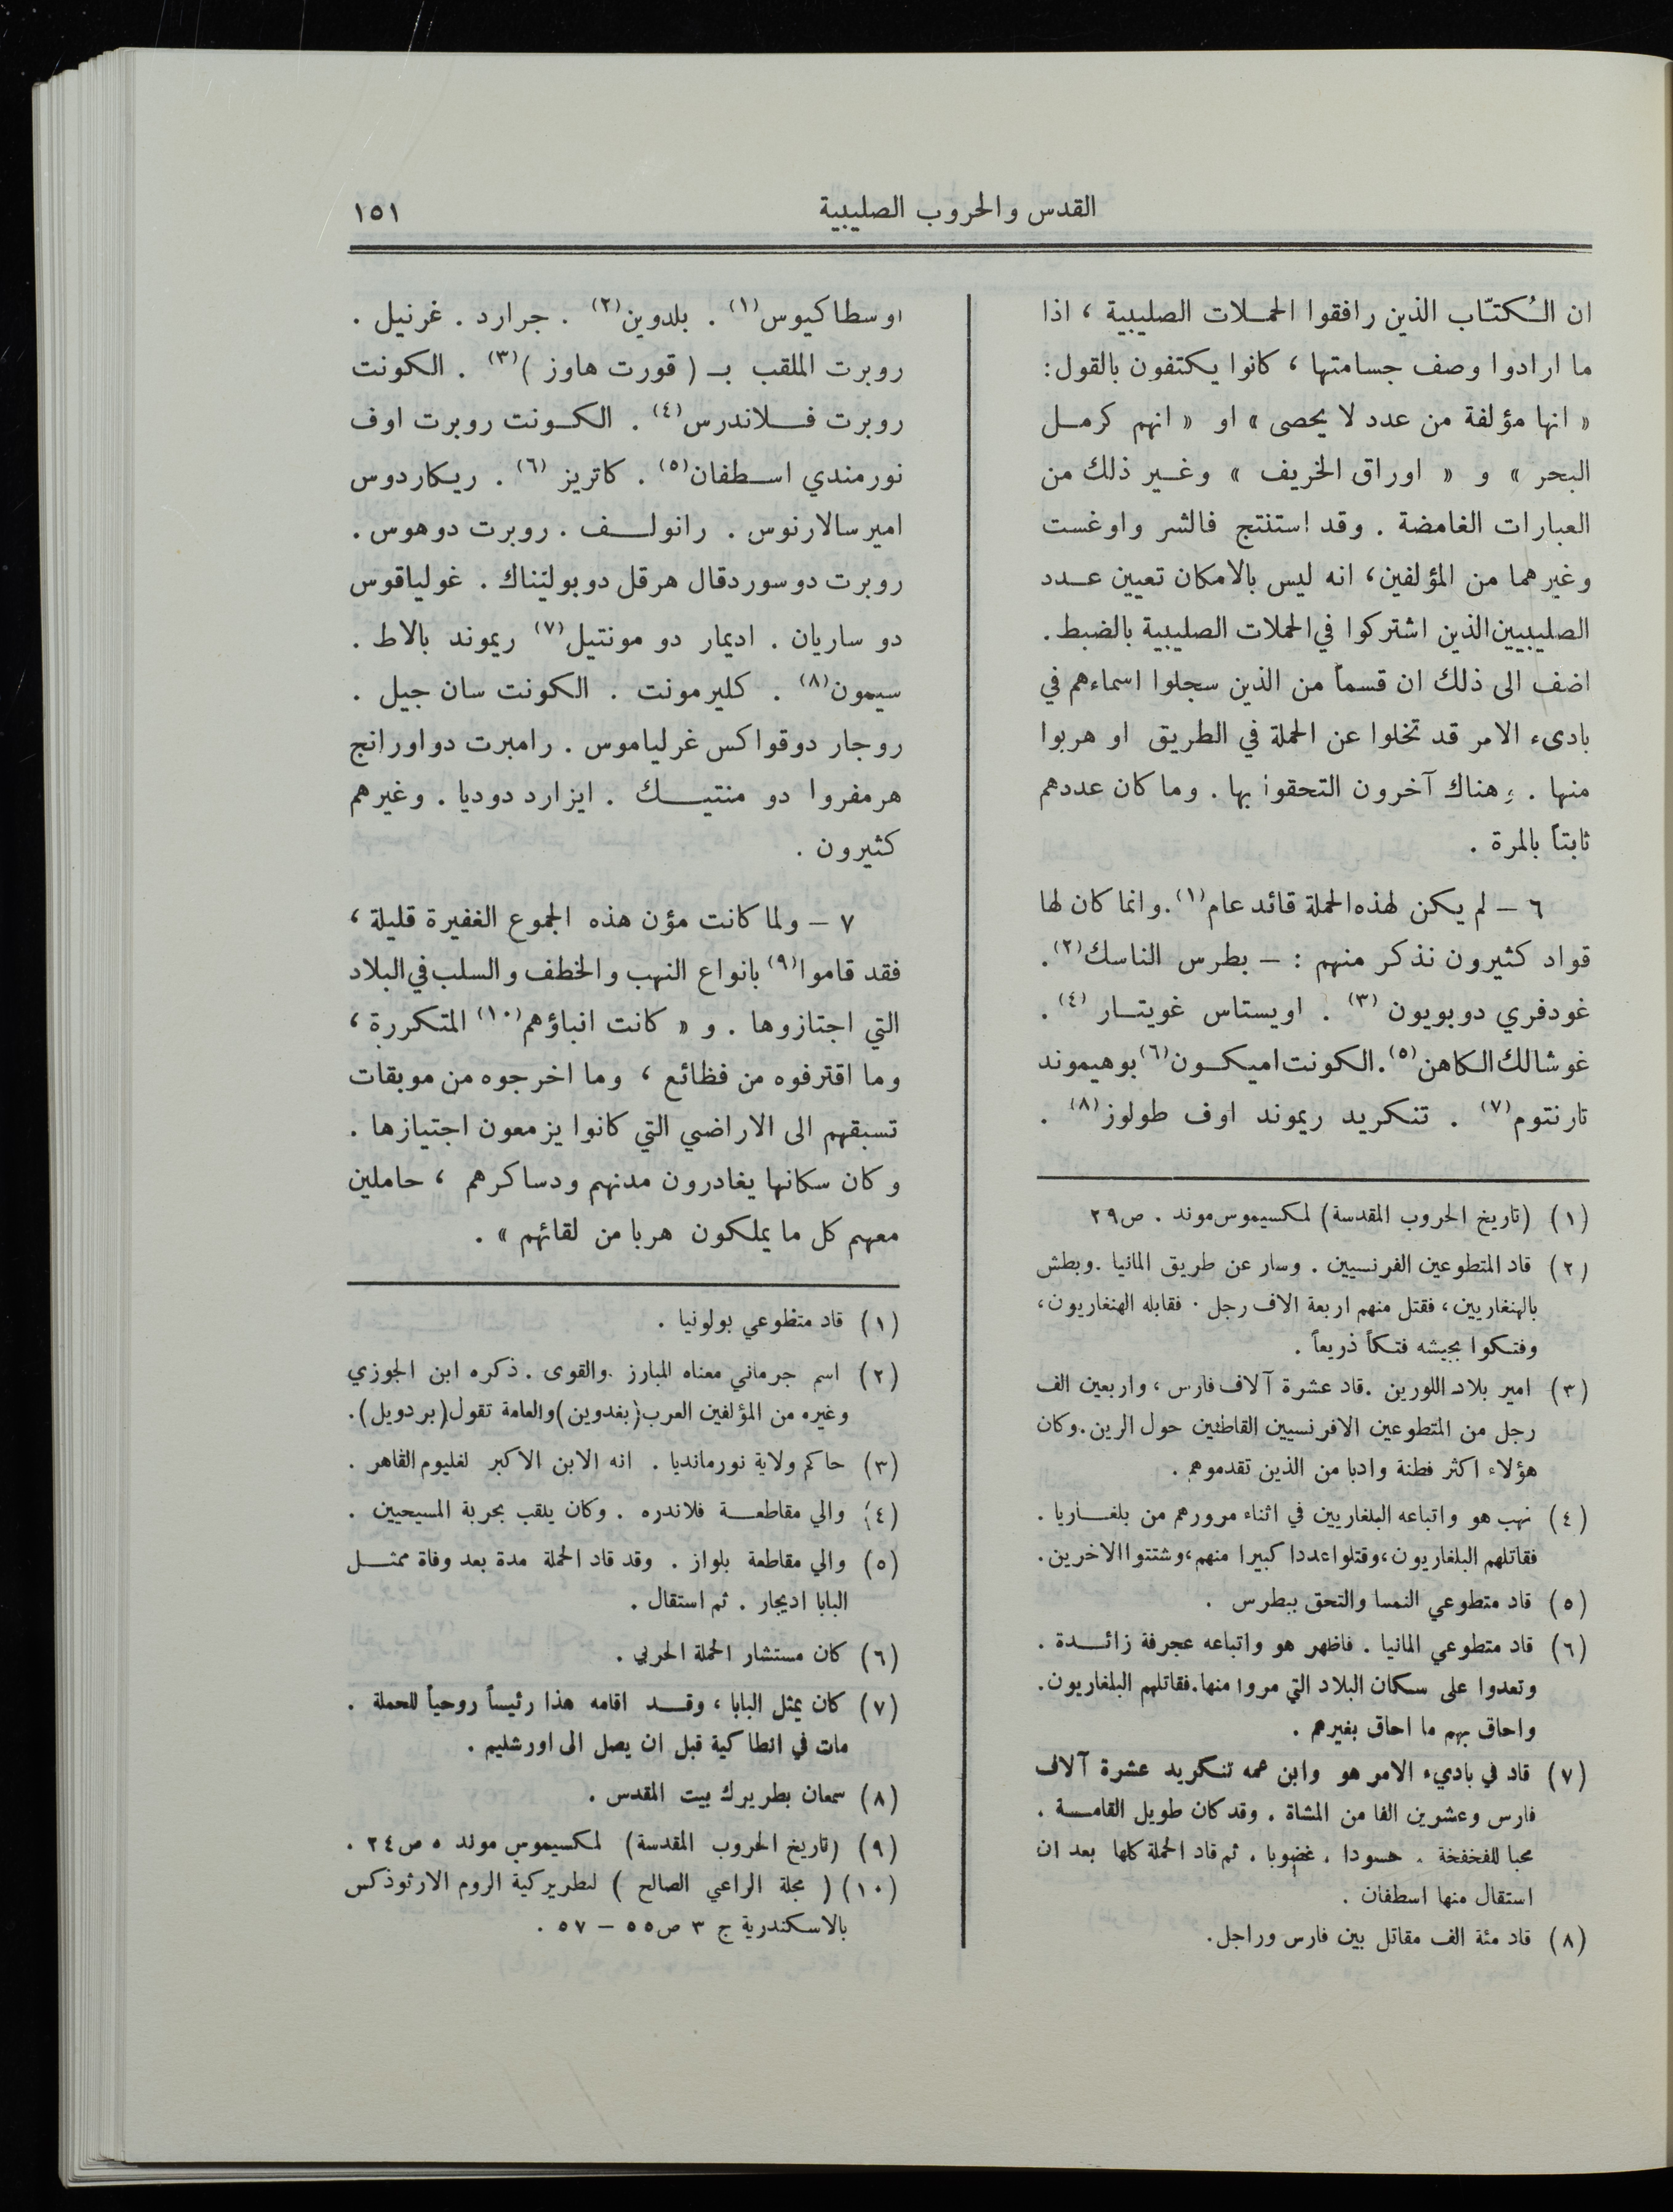 القدس والحروب الصليبية
١٥١
ان الكُتّاب الذين رافقوا الحملات الصليبية ، اذا
ما ارادوا وصف جسامتها ، كانوا يكتفون بالقول :
« انها مؤلفة من عدد لا يحصى » او « انهم كرمل
البحر » و « اوراق الخريف » وغير ذلك من
العبارات الغامضة . وقد استنتج فالشر واوغست
وغيرهما من المؤلفين ، انه ليس بالامكان تعيين عدد
الصليبيين الذين اشتركوا في الحملات الصليبية بالضبط .
اضف الى ذلك ان قسماً من الذين سجلوا اسماءهم في
بادىء الامر قد تخلوا عن الحملة في الطريق او هربوا
منها . وهناك آخرون التحقوا بها . وما كان عددهم
ثابتاً بالمرة .
٦ – لم يكن لهذه الحملة قائد عام (١) . وانما كان لها
قواد كثيرون نذكر منهم : – بطرس الناسك (٢) .
غودفري دوبويون (٣) . اويستاس غويتار (٤) .
غوشالك الكاهن (٥) . الكونت اميكون (٦) بوهيموند
تارنتوم (٧) . تنكريد ريموند اوف طولوز (٨) .
(١) (تاريخ الحروب المقدسة) لمكسيموس موند . ص ٢٩
(٢) قاد المتطوعين الفرنسيين . وسار عن طريق المانيا . وبطش
بالهنغاريين ، فقتل منهم اربعة الاف رجل . فقابله الهنغاريون ،
وفتكوا بجيشه فتكاً ذريعاً .
(٣) امير بلاد اللورين . قاد عشرة آلاف فارس ، واربعين الف
رجل من المتطوعين الافرنسيين القاطنين حول الرين . وكان
هؤلاء اكثر فطنة وادبا من الذين تقدموهم .
(٤) نهب هو واتباعه البلغاريين في اثناء مرورهم من بلغاريا .
فقاتلهم البلغاريون ، وقتلوا عددا كبيرا منهم ، وشتتوا الاخرين .
(٥) قاد متطوعي النمسا والتحق ببطرس .
(٦) قاد متطوعي المانيا . فاظهر هو واتباعه عجرفة زائدة .
وتعدوا على سكان البلاد التي مروا منها . فقاتلهم البلغاريون .
واحاق بهم ما احاق بغيرهم .
(٧) قاد في باديء الامر هو وابن عمه تنكريد عشرة آلاف
فارس وعشرين الفا من المشاة . وقد كان طويل القامة .
محبا للفخفخة . حسودا . غضوبا . ثم قاد الحملة كلها بعد ان
استقال منها اسطفان .
(٨) قاد مئة الف مقاتل بين فارس وراجل .
اوسطاكيوس (١) . بلدوين (٢) . جرارد . غرنيل .
روبرت الملقب بـ ( قورت هاوز ) (٣) . الكونت
روبرت فلاندرس (٤) . الكونت روبرت اوف
نورمندي اسطفان (٥) . كاتريز (٦) . ريكاردوس
امير سالارنوس . رانولف . روبرت دوهوس .
روبرت دوسوردقال هرقل دوبولنيناك . غولياقوس
دو ساريان . اديمار دو مونتيل (٧) ريموند بالاط .
سيمون (٨) . كليرمونت . الكونت سان جيل .
روجار دوقواكس غرلياموس . رامبرت دواورانج
هرمفروا دو منتيك . ايزارد دوديا . وغيرهم
كثيرون .
٧ – ولما كانت مؤن هذه الجموع الغفيرة قليلة ،
فقد قاموا (٩) بانواع النهب والخطف والسلب في البلاد
التي اجتازوها . و « كانت انباؤهم (١٠) المتكررة ،
وما اقترفوه من فظائع ، وما اخرجوه من موبقات
تسبقهم الى الاراضي التي كانوا يزمعون اجتيازها .
وكان سكانها يغادرون مدنهم ودساكرهم ، حاملين
معهم كل ما يملكون هربا من لقائهم » .
(١) قاد متطوعي بولونيا .
(٢) اسم جرماني معناه المبارز والقوى . ذكره ابن الجوزي
وغيره من المؤلفين العرب (بغدوين) والعامة تقول (بردويل) .
(٣) حاكم ولاية نورمانديا . انه الابن الاكبر لغليوم القاهر .
(٤) والي مقاطعة فلاندره . وكان يلقب بحربة المسيحيين .
(٥) والي مقاطعة بلواز . وقد قاد الحملة مدة بعد وفاة ممثل
البابا اديجار . ثم استقال .
(٦) كان مستشار الحملة الحربي .
(٧) كان يمثل البابا ، وقد اقامه هذا رئيساً روحياً للحملة .
مات في انطاكية قبل ان يصل الى اورشليم .
(٨) سمعان بطريرك بيت المقدس .
(٩) (تاريخ الحروب المقدسة) لمكسيموس موند ٥ ص ٢٤ .
(١٠) ( مجلة الراعي الصالح ) لبطريركية الروم الارثوذكس
بالاسكندرية ج ٣ ص ٥٥ – ٥٧ .